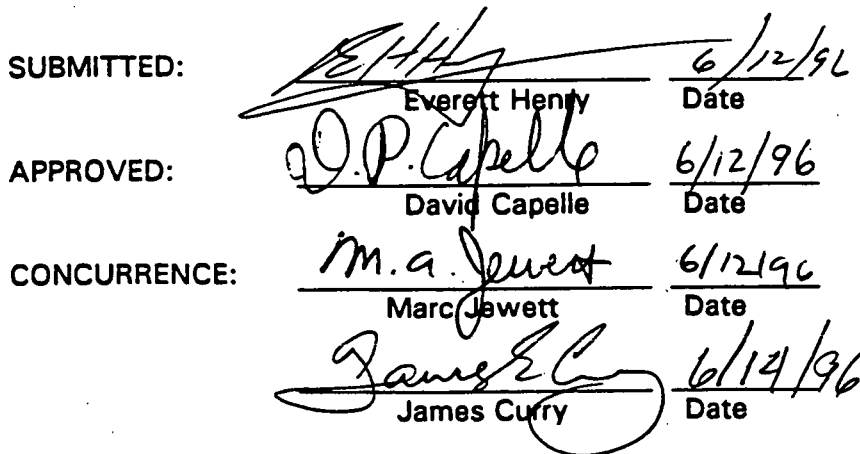 SUBMITTED: EHHy 6/12/96
Everett Henry Date
APPROVED: D.P. Capelle 6/12/96
David Capelle Date
CONCURRENCE: M.a. Jewett 6/12/96
Marc Jewett Date
James E Curry 6/14/96
James Curry Date